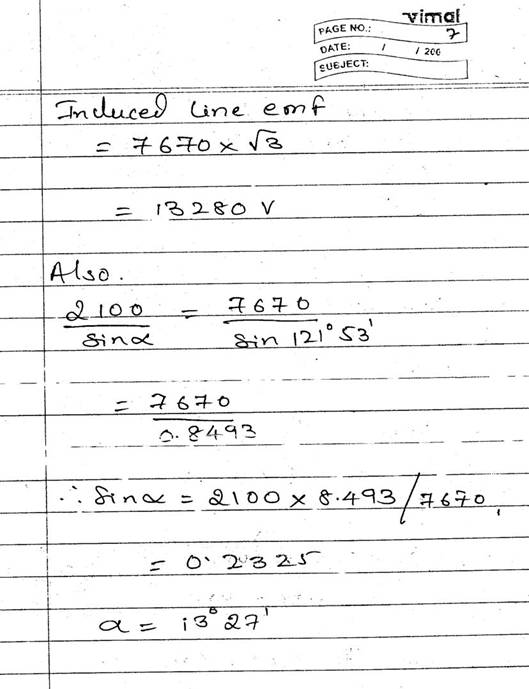 vimal
PAGE NO.: 7
DATE: / / 200
SUBJECT:
Induced line emf
= 7670 × √3
= 13280 V
Also.
2100 / sinα = 7670 / sin 121° 53'
= 7670 / 0.8493
∴ sinα = 2100 × 8.493 / 7670
= 0.2325
α = 13° 27'